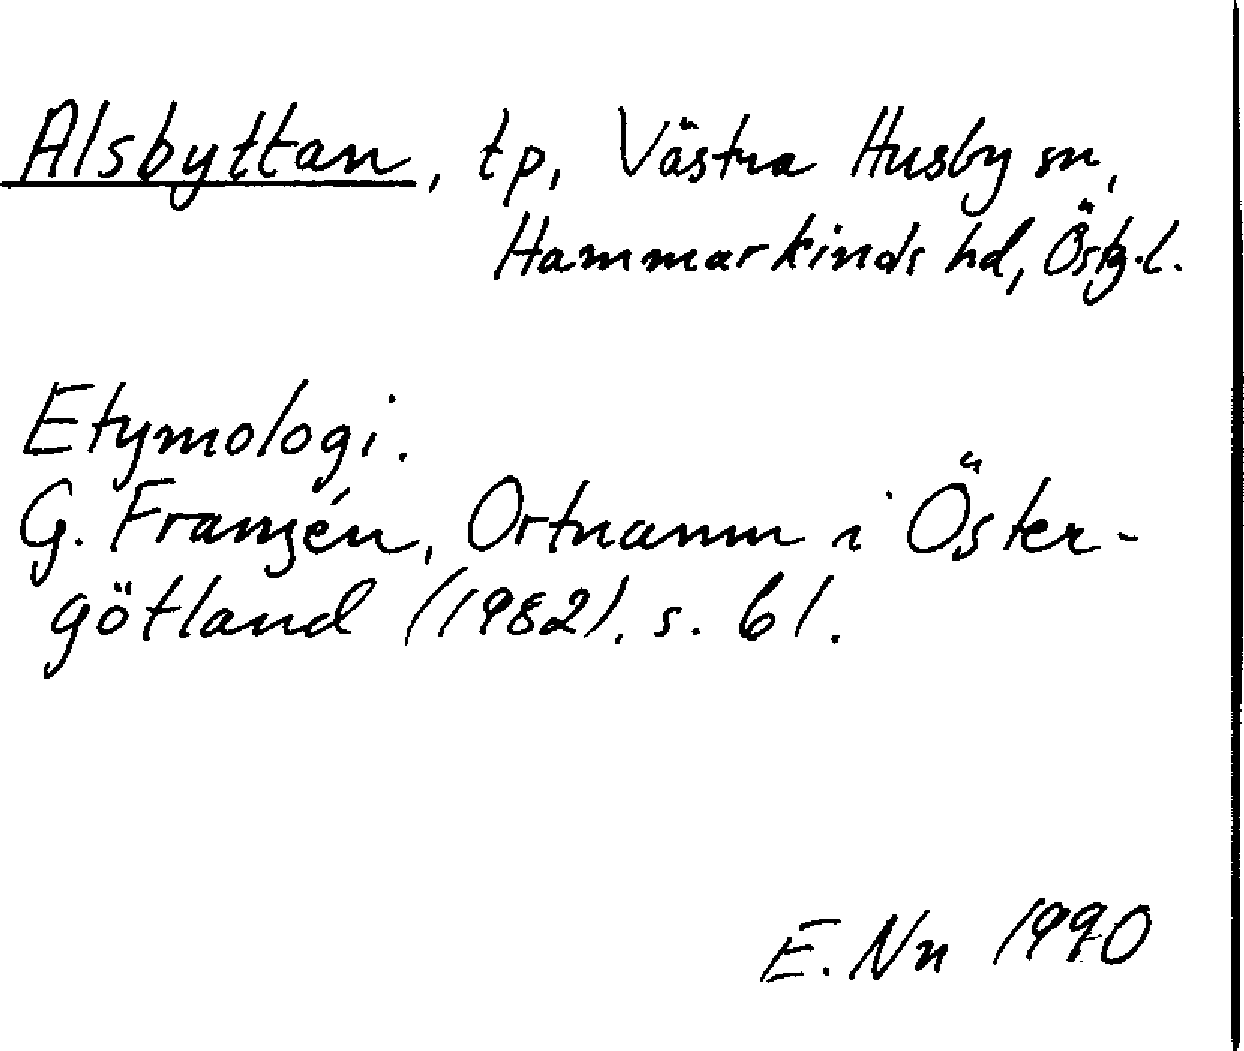 Alsbyttan, tp, Västra Husby sn,
Hammarkinds hd, Östg.l.
Etymologi.
G. Franzén, Ortnamn i Öster-
götland (1982), s. 61.
E. Nn 1990